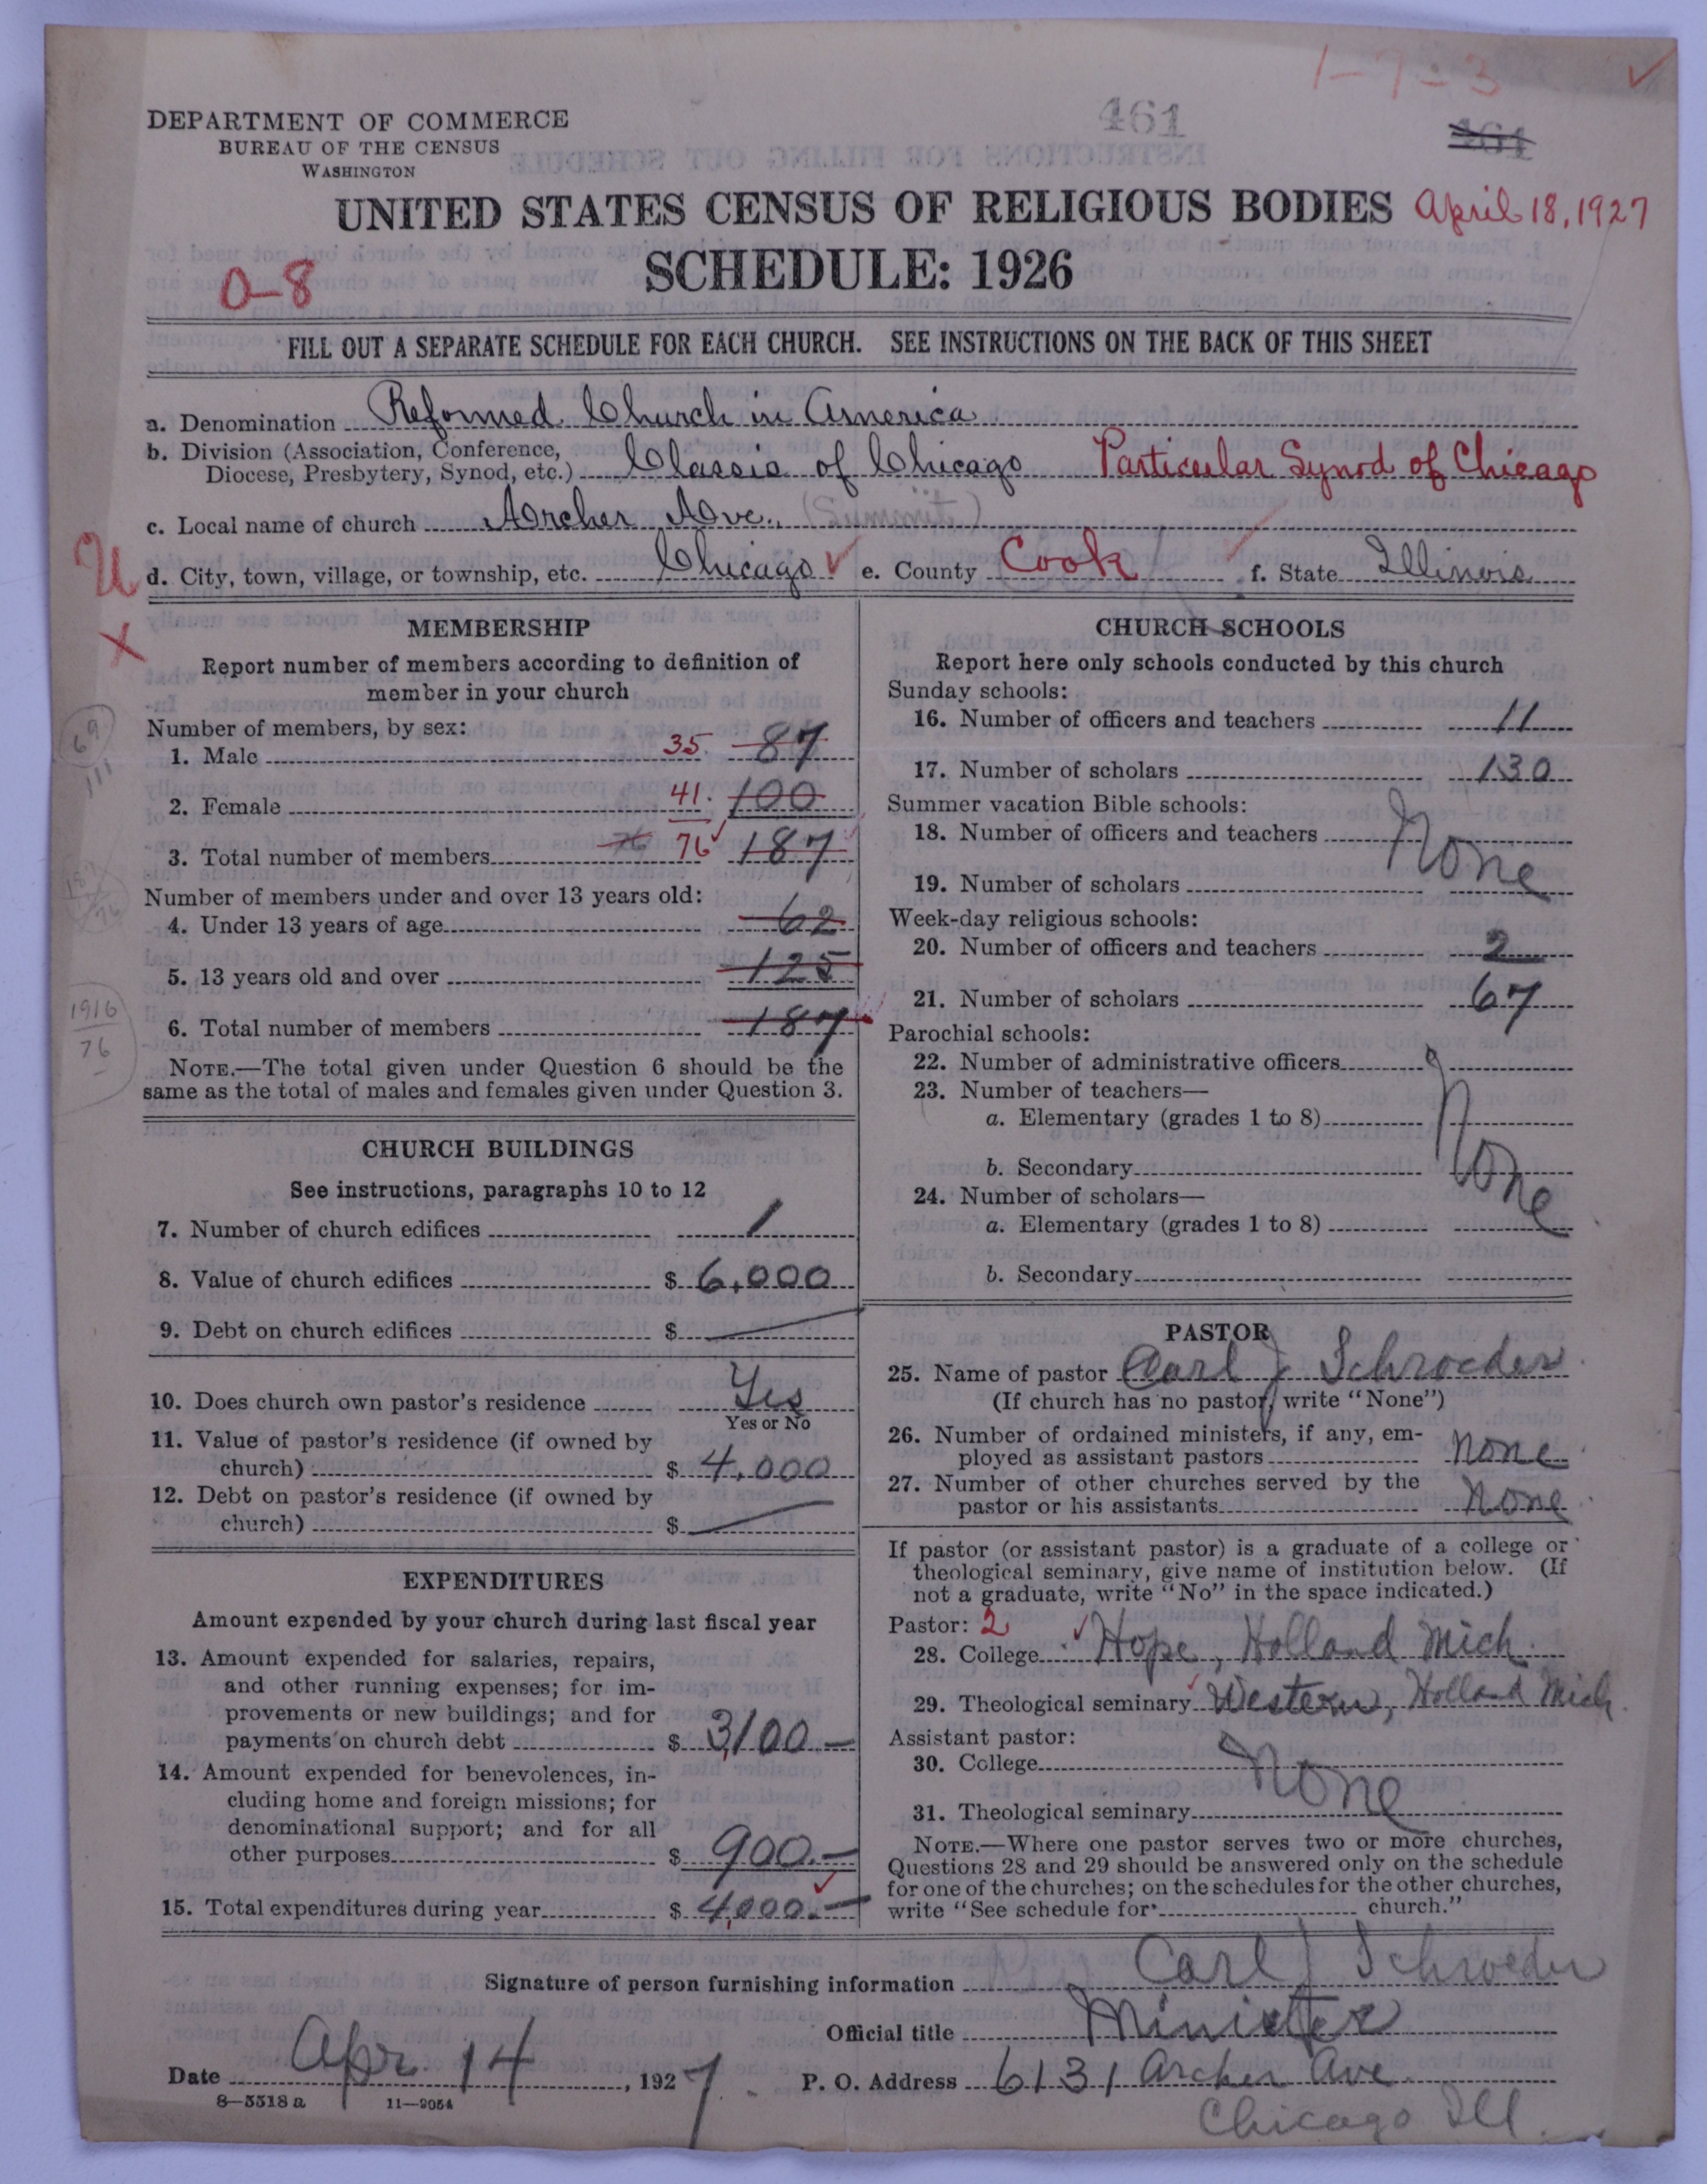 1-7-3
461
461
DEPARTMENT OF COMMERCE
BUREAU OF THE CENSUS
WASHINGTON
UNITED STATES CENSUS OF RELIGIOUS BODIES April 18, 1927
SCHEDULE: 1926
0-8
FILL OUT A SEPARATE SCHEDULE FOR EACH CHURCH. SEE INSTRUCTIONS ON THE BACK OF THIS SHEET
a. Denomination Reformed Church in America
b. Division (Association, Conference,
Diocese, Presbytery, Synod, etc.) Classis of Chicago Particular Synod of Chicago
c. Local name of church Archer Ave. (Summit)
U d. City, town, village, or township, etc. Chicago e. County Cook f. State Illinois
X
MEMBERSHIP
Report number of members according to definition of
member in your church
Number of members, by sex:
1. Male 35 87
69
111
2. Female 41 100
3. Total number of members 76 76 187
Number of members under and over 13 years old:
4. Under 13 years of age 62
5. 13 years old and over 125
1916
76
6. Total number of members 187
NOTE.—The total given under Question 6 should be the
same as the total of males and females given under Question 3.
CHURCH BUILDINGS
See instructions, paragraphs 10 to 12
7. Number of church edifices 1
8. Value of church edifices $ 6,000
9. Debt on church edifices $ —
10. Does church own pastor's residence Yes
Yes or No
11. Value of pastor's residence (if owned by
church) $ 4,000
12. Debt on pastor's residence (if owned by
church) $ —
EXPENDITURES
Amount expended by your church during last fiscal year
13. Amount expended for salaries, repairs,
and other running expenses; for im-
provements or new buildings; and for
payments on church debt $ 3,100—
14. Amount expended for benevolences, in-
cluding home and foreign missions; for
denominational support; and for all
other purposes $ 900.—
15. Total expenditures during year $ 4,000.—
CHURCH SCHOOLS
Report here only schools conducted by this church
Sunday schools:
16. Number of officers and teachers 11
17. Number of scholars 130
Summer vacation Bible schools:
18. Number of officers and teachers None
19. Number of scholars
Week-day religious schools:
20. Number of officers and teachers 2
21. Number of scholars 67
Parochial schools:
22. Number of administrative officers
23. Number of teachers—
a. Elementary (grades 1 to 8)
b. Secondary None
24. Number of scholars—
a. Elementary (grades 1 to 8)
b. Secondary
PASTOR
25. Name of pastor Carl J Schroeder
(If church has no pastor, write "None")
26. Number of ordained ministers, if any, em-
ployed as assistant pastors none
27. Number of other churches served by the
pastor or his assistants None
If pastor (or assistant pastor) is a graduate of a college or
theological seminary, give name of institution below. (If
not a graduate, write "No" in the space indicated.)
Pastor: 2
28. College Hope, Holland Mich.
29. Theological seminary Western, Holland Mich
Assistant pastor:
30. College None
31. Theological seminary
NOTE.—Where one pastor serves two or more churches,
Questions 28 and 29 should be answered only on the schedule
for one of the churches; on the schedules for the other churches,
write "See schedule for church."
Signature of person furnishing information Carl J Schroeder
Official title Minister
Date Apr 14, 1927. P. O. Address 6131 Archer Ave
Chicago Ill.
8—5518 a 11—9054